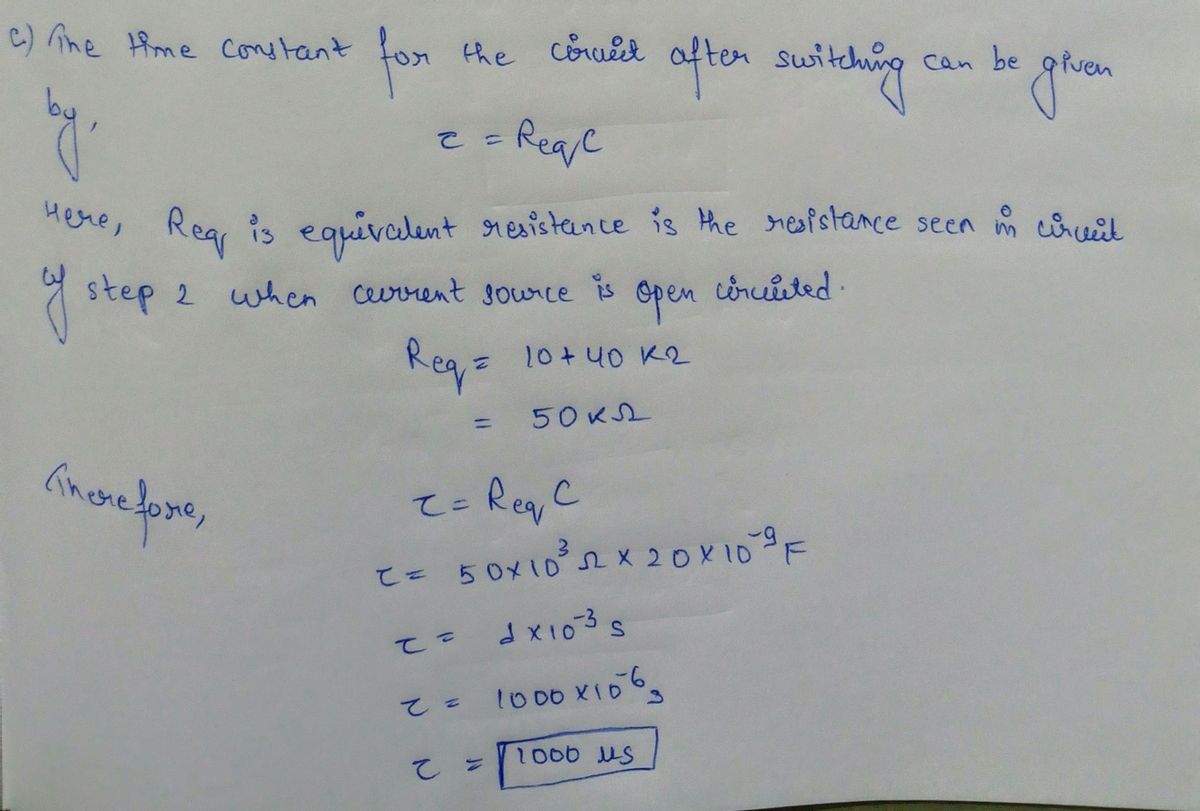 c) The time constant for the circuit after switching can be given
by,
τ = Req C
Here, Req is equivalent resistance is the resistance seen in circuit
of step 2 when current source is open circuited.
Req = 10 + 40 KΩ
= 50 KΩ
Therefore,
τ = Req C
τ = 50×10³ Ω × 20×10⁻⁹ F
τ = 1×10⁻³ s
τ = 1000×10⁻⁶ s
τ = 1000 μs